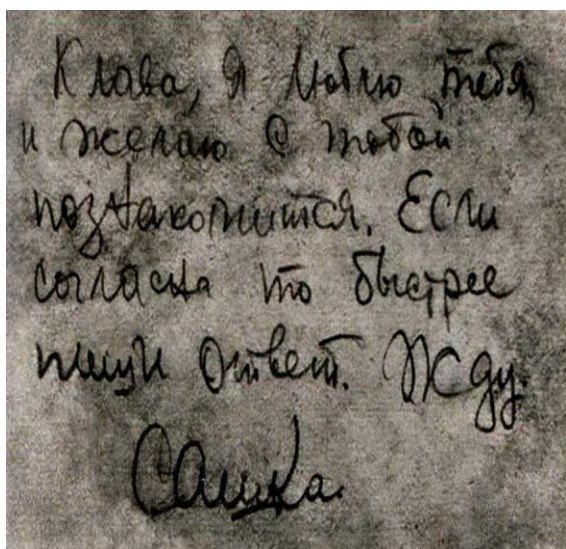 Клава, я люблю тебя,
и желаю с тобой
познакомится. Если
согласна то быстрее
пиши ответ. Жду.
Сашка.